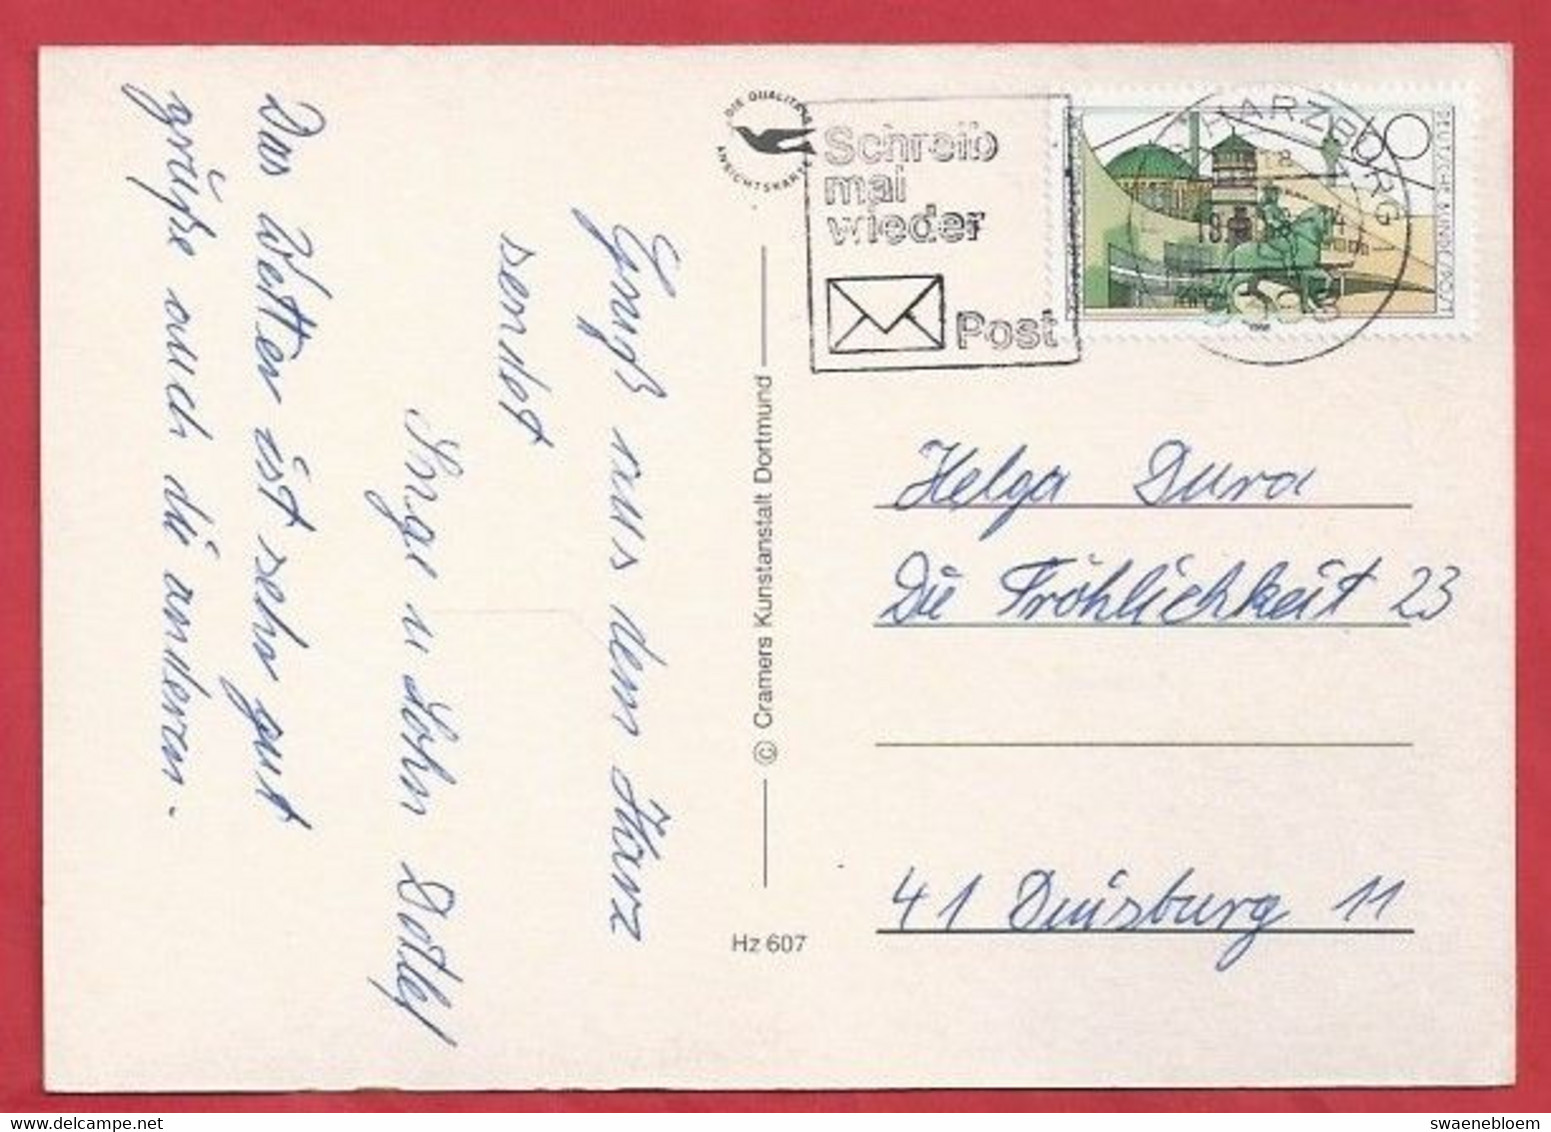 Gruß aus dem Harz
sendet
Inge u Sohn Detlef
Das Wetter ist sehr gut
grüße auch die anderen.
DIE QUALITÄTS
ANSICHTSKARTE
© Cramers Kunstanstalt Dortmund
Hz 607
Schreib
mal
wieder
Post
HARZBURG
18
60
DEUTSCHE BUNDESPOST
Helga Dura
Die Fröhlichkeit 23
41 Duisburg 11
www.delcampe.net
swaenebloem